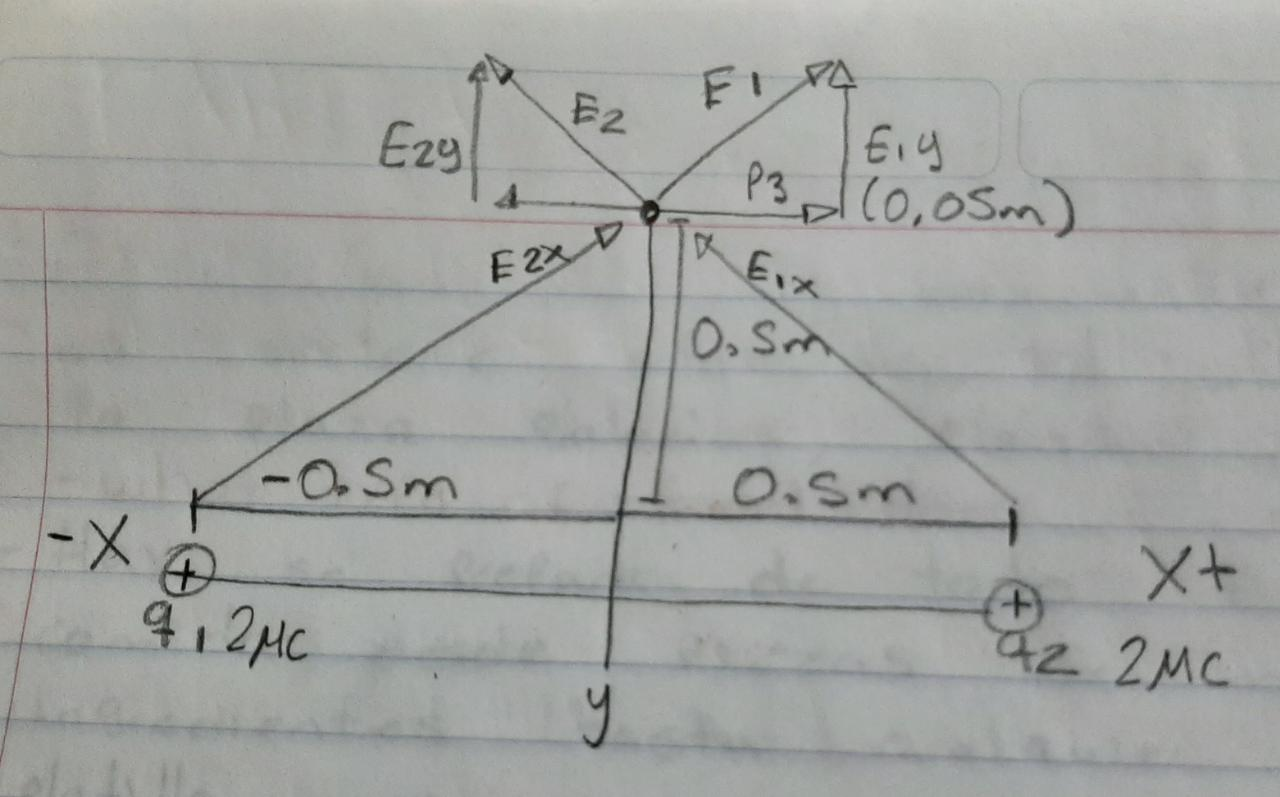 E2
E1
E2y
E1y
P3
(0,05m)
E2x
E1x
0.5m
-0.5m
0.5m
-X
X+
q1 2μc
q2 2μc
y